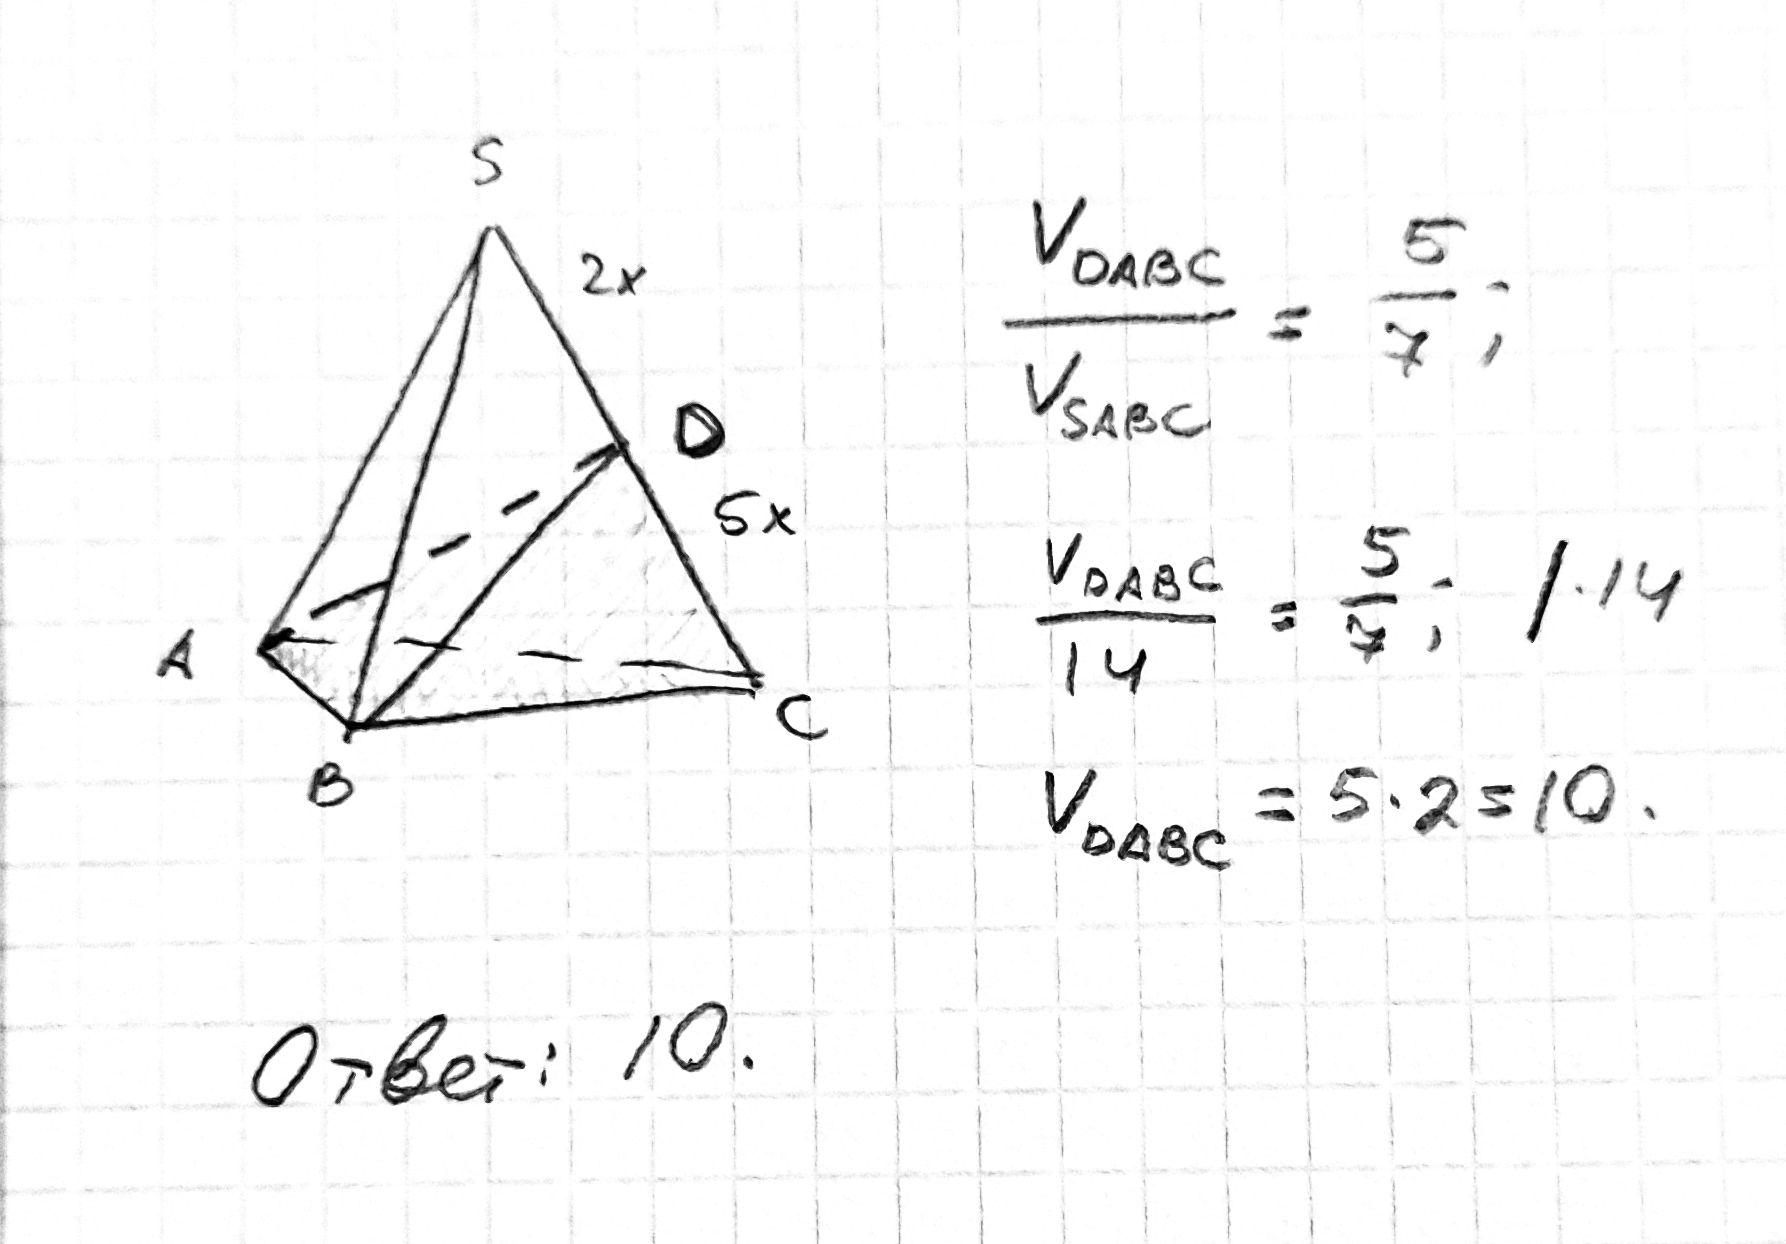 S
2x
D
5x
A
B
C
V_DABC / V_SABC = 5/7;
V_DABC / 14 = 5/7; / · 14
V_DABC = 5·2=10.
Ответ: 10.